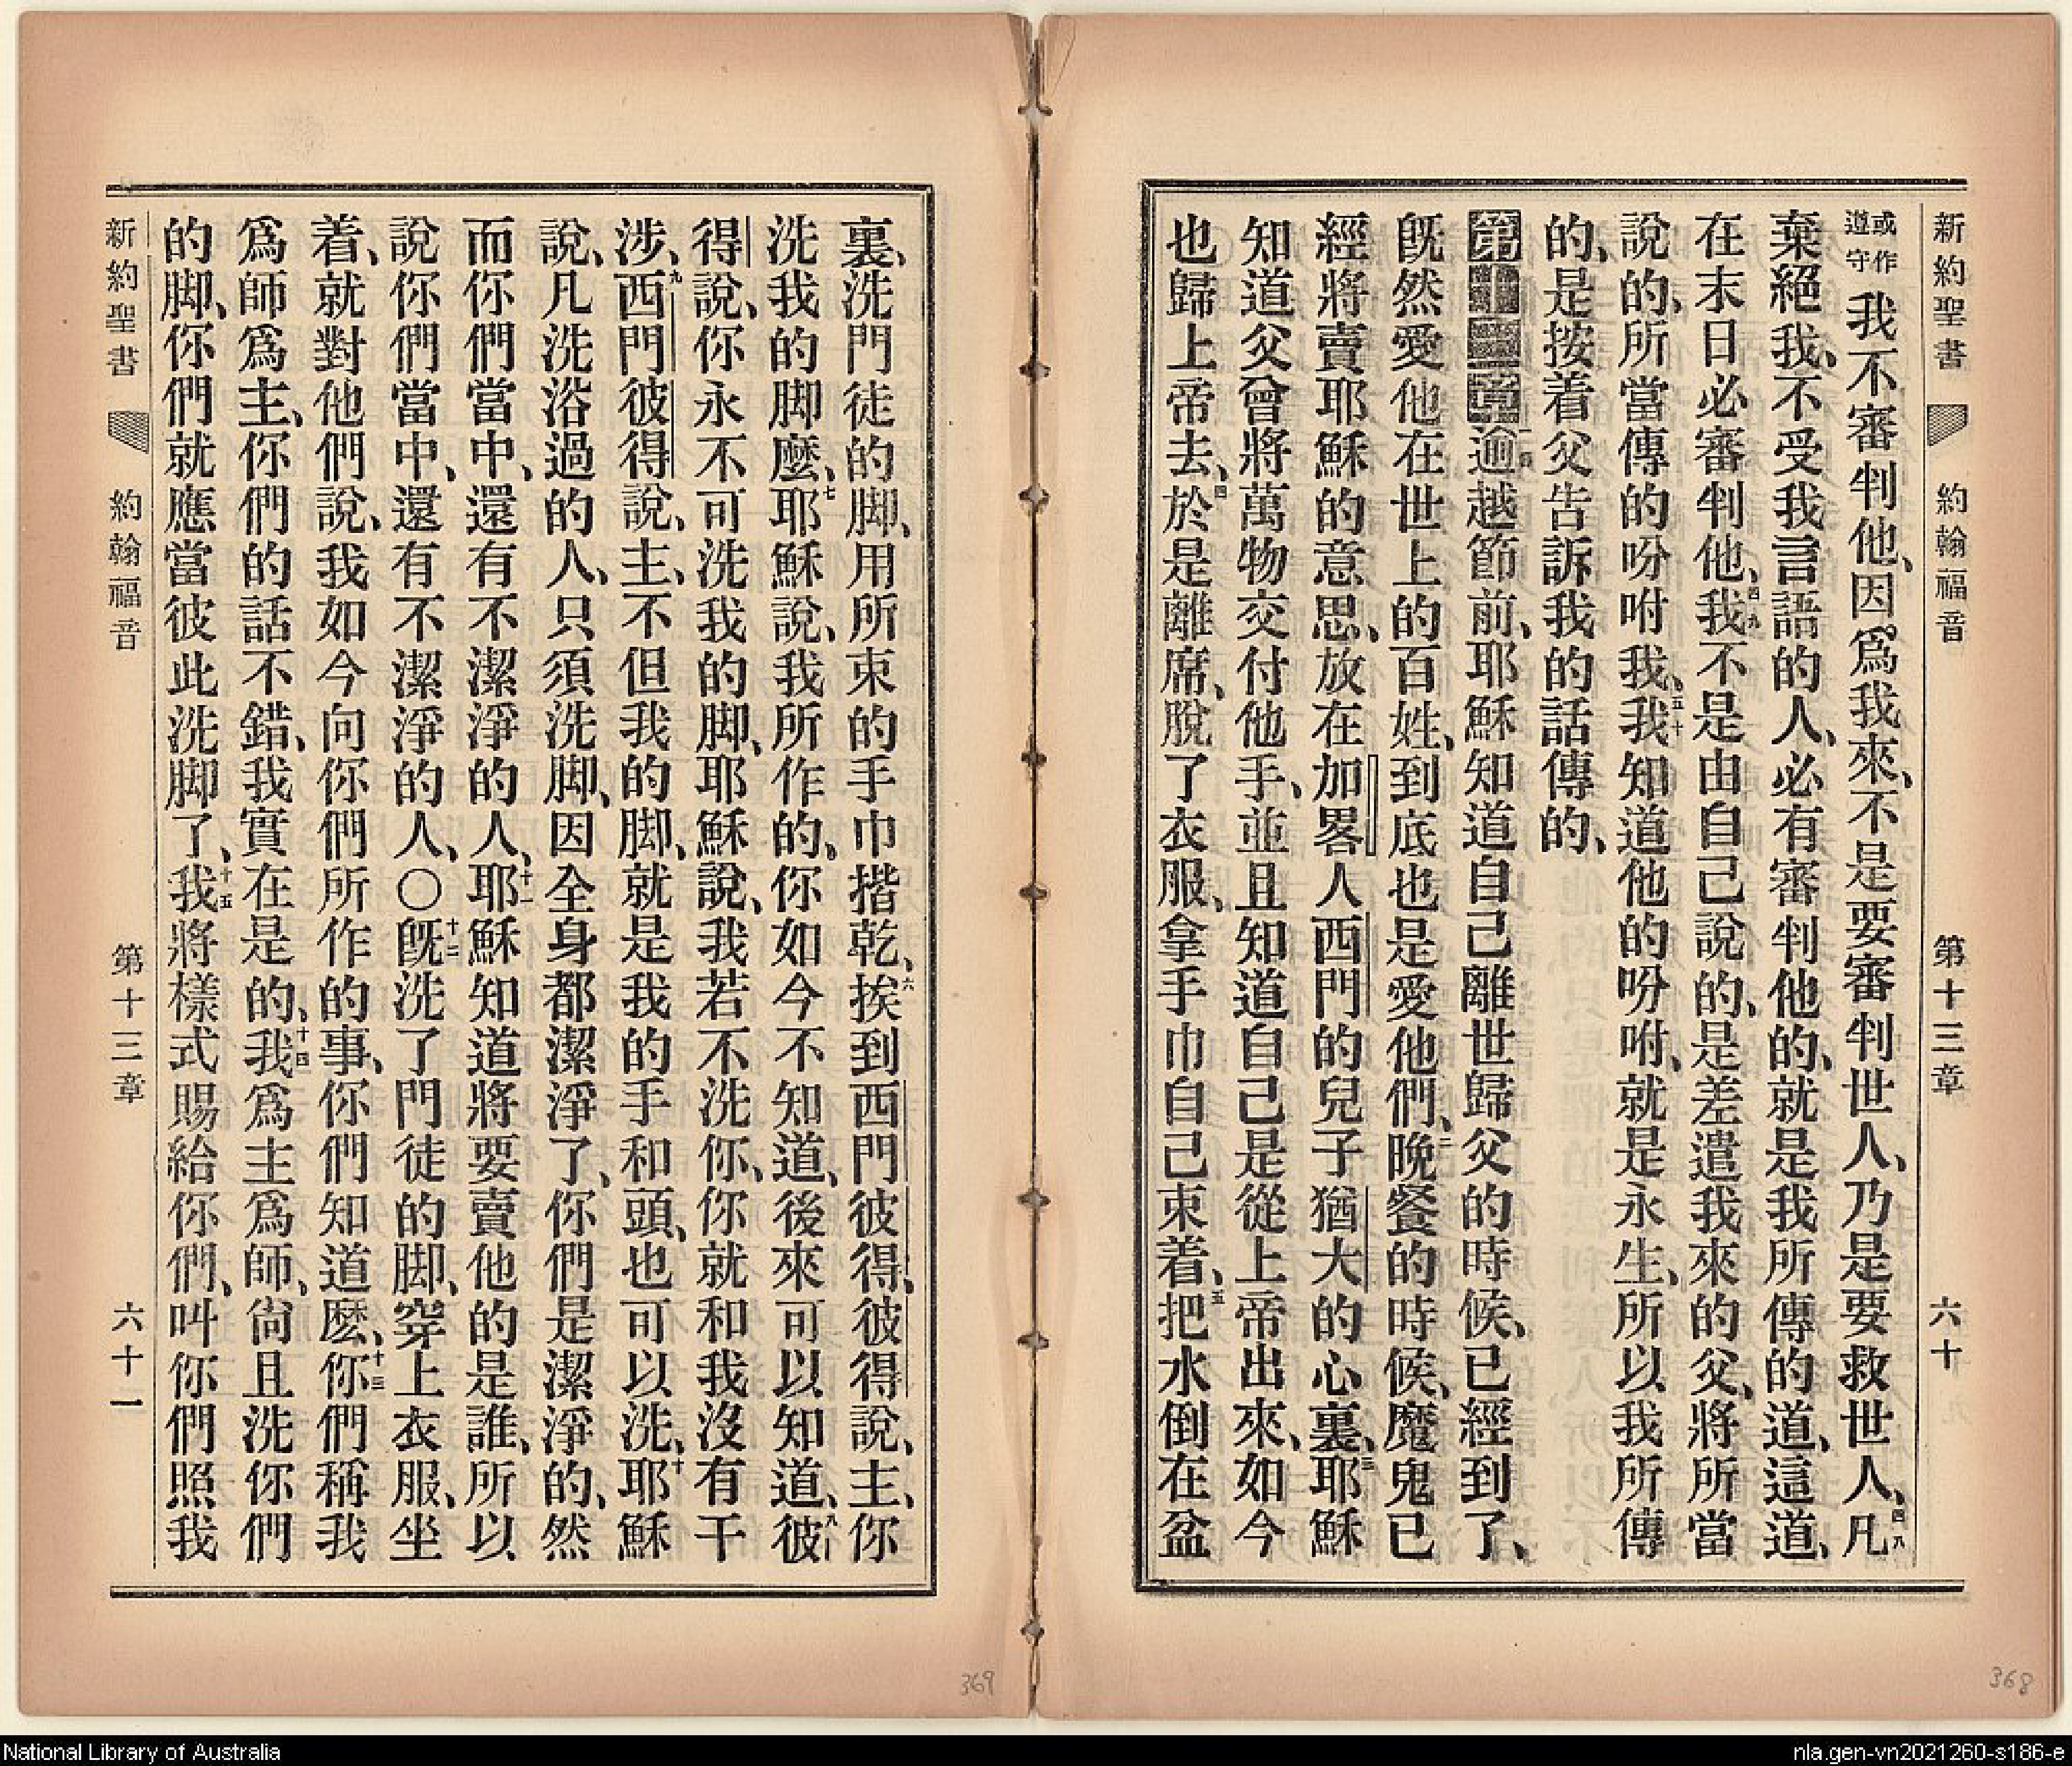 新約聖書 約翰福音 第十三章 六十
或作遵守 我不審判他、因爲我來、不是要審判世人、乃是要救世人、四八凡
棄絕我、不受我言語的人、必有審判他的、就是我所傳的道、這道、
在末日必審判他、四九我不是由自己說的、是差遣我來的父、將所當
說的、所當傳的吩咐我、五十我知道他的吩咐、就是永生、所以我所傳
的、是按着父告訴我的話傳的、
第十三章 一逾越節前、耶穌知道自己離世歸父的時候、已經到了、
旣然愛他在世上的百姓、到底也是愛他們、二晚餐的時候、魔鬼已
經將賣耶穌的意思、放在加畧人西門的兒子猶大的心裏、三耶穌
知道父曾將萬物交付他手、並且知道自己是從上帝出來、如今
也歸上帝去、四於是離席、脫了衣服、拿手巾自己束着、五把水倒在盆
裏、洗門徒的脚、用所束的手巾揩乾、六挨到西門彼得、彼得說、主、你
洗我的脚麼、七耶穌說、我所作的、你如今不知道、後來可以知道、八彼
得說、你永不可洗我的脚、耶穌說、我若不洗你、你就和我沒有干
涉、九西門彼得說、主、不但我的脚、就是我的手和頭、也可以洗、十耶穌
說、凡洗浴過的人、只須洗脚、因全身都潔淨了、你們是潔淨的、然
而你們當中、還有不潔淨的人、十一耶穌知道將要賣他的是誰、所以
說你們當中、還有不潔淨的人、〇十二旣洗了門徒的脚、穿上衣服、坐
着、就對他們說、我如今向你們所作的事、你們知道麼、十三你們稱我
爲師爲主、你們的話不錯、我實在是的、十四我爲主爲師、尙且洗你們
的脚、你們就應當彼此洗脚了、十五我將樣式賜給你們、叫你們照我
新約聖書 約翰福音 第十三章 六十一
369
368
National Library of Australia
nla.gen-vn2021260-s186-e